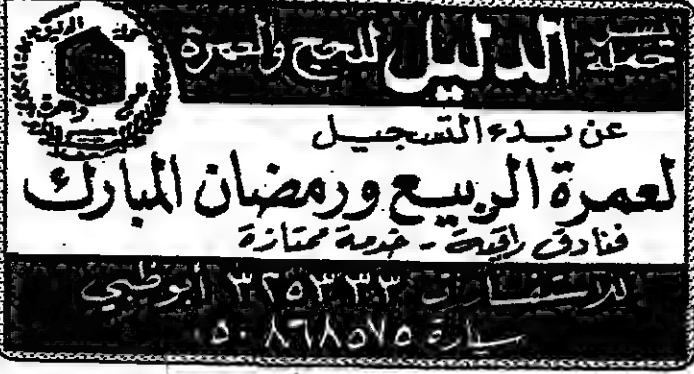 يسر حملة الدليل للحج والعمرة
عن بدء التسجيل
لعمرة الربيع ورمضان المبارك
فنادق راقية - خدمة ممتازة
للاستفسارات ٣٢٥٣٣٣ أبوظبي
سيارة ٠٥٠٨٦٨٥٧٥